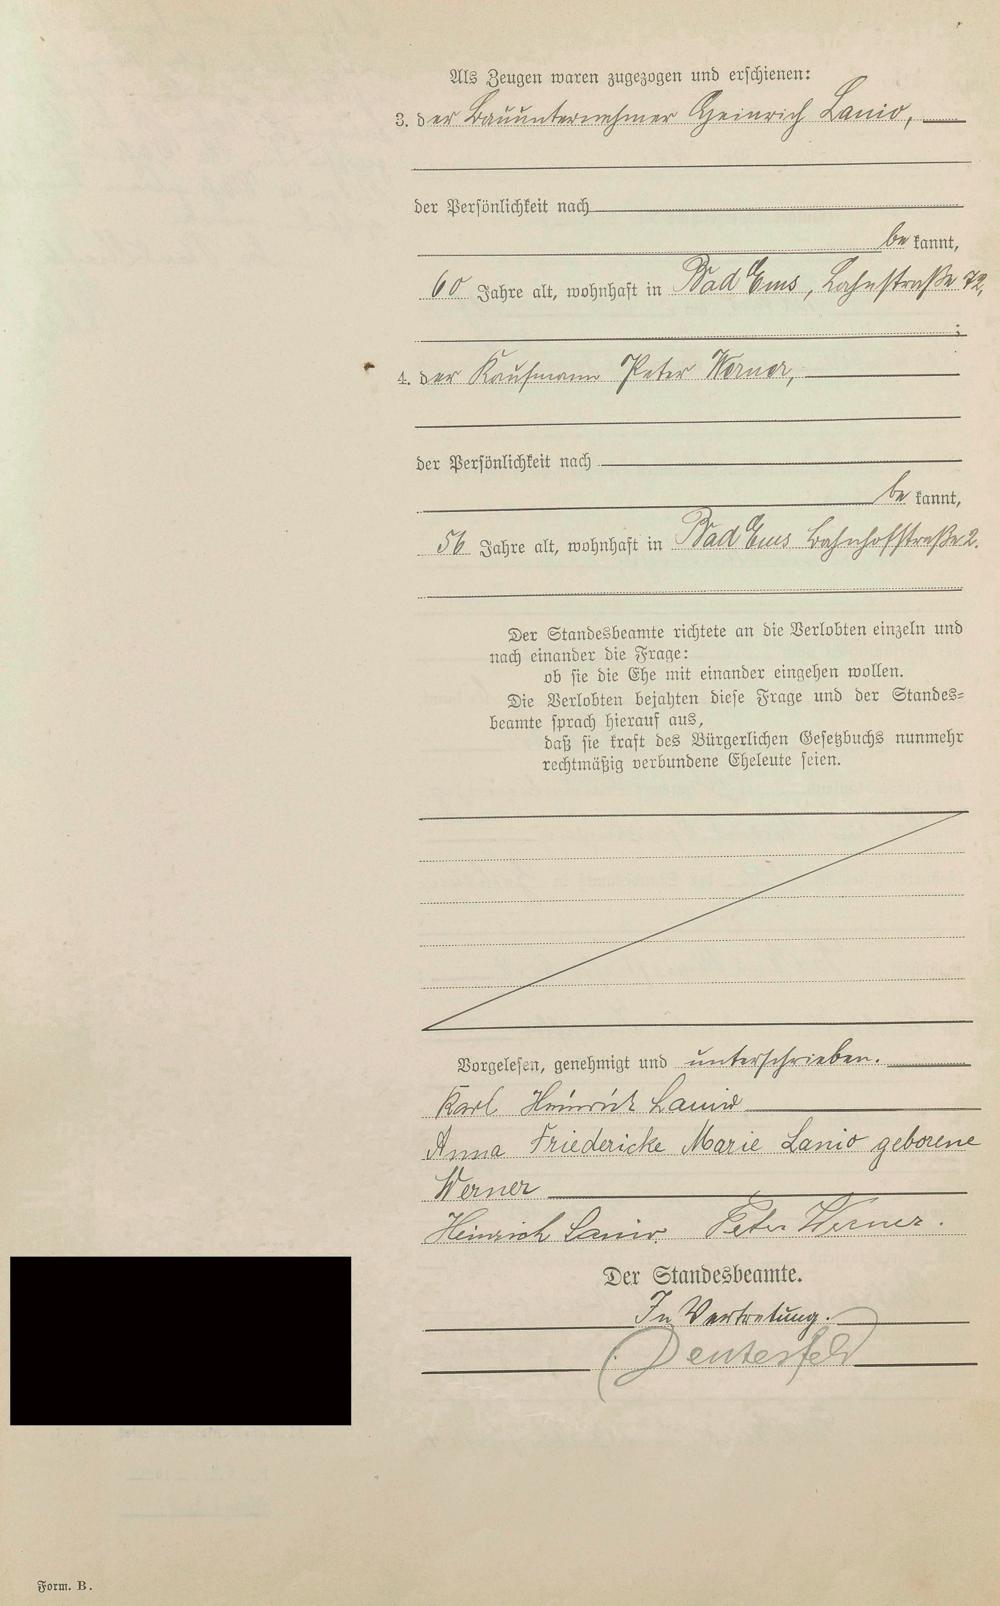 Als Zeugen waren zugezogen und erschienen:
3. der Bauunternehmer Heinrich Lanio,
der Persönlichkeit nach
be kannt,
60 Jahre alt, wohnhaft in Bad Ems, Lahnstraße 72,
;
4. der Kaufmann Peter Werner,
der Persönlichkeit nach
be kannt,
56 Jahre alt, wohnhaft in Bad Ems Bahnhofstraße 2.
Der Standesbeamte richtete an die Verlobten einzeln und
nach einander die Frage:
ob sie die Ehe mit einander eingehen wollen.
Die Verlobten bejahten diese Frage und der Standes=
beamte sprach hierauf aus,
daß sie kraft des Bürgerlichen Gesetzbuchs nunmehr
rechtmäßig verbundene Eheleute seien.
Vorgelesen, genehmigt und unterschrieben.
Karl Heinrich Lanio
Anna Friedericke Marie Lanio geborene
Werner
Heinrich Lanio. Peter Werner.
Der Standesbeamte.
In Vertretung.
Form. B.